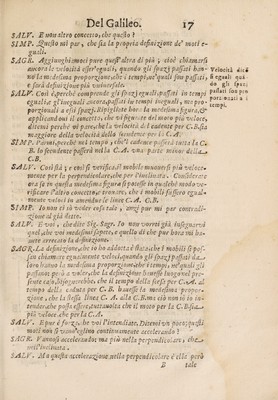 Del Galileo. 17
SALV. E vn'altro concetto, che questo?
SIMP. Questo mi par, che sia la propria definizione de' moti eguali.
SAGR. Aggiunghiamoci pure quest'altra di più; cioè chiamarsi
ancora le velocità esser'eguali, quando gli spazij passati hanno
la medesima proporzione, che i tempi, ne' quali son passati,
e sarà definizione più vniuersale.
Velocità dirsi
eguali quando
gli spazij
passati son proporzionati
a i
tempi.
SALV. Così è: perche comprende gli spazij eguali passati in tempi
eguali, e gl'ineguali ancora, passati in tempi ineguali, ma proporzionali
a essi spazij. Ripigliate hora la medesima figura, &
applicandoui il concetto, che vi figurate del moto più veloce,
ditemi perche vi par, che la velocità del cadente per C.B. sia
maggiore della velocità dello scendente per C.A.
SIMP. Parmi, perche nel tempo, che'l cadente passerà tutta la
C.B. lo scendente passerà nella C.A. vna parte minor della
C.B.
SALV. Così stà; e così si verifica, il mobile muouersi più velocemente
per la perpendicolare, che per l'inclinata. Considerate
ora se in questa medesima figura si potesse in qualche modo verificare
l'altro concetto, e trouare, che i mobili fussero egualmente
veloci in amendue le linee C.A. C.B.
SIMP. Io non ci sò veder cosa tale; anzi pur mi par contradizione
al già detto.
SALV. E voi, che dite Sig. Sagr. Io non vorrei già insegnarui
quel, che voi medesimi sapete, e quello di che pur hora mi hauete
arrecato la definizione.
SAGR. La definizione, che io ho addotta è stata, che i mobili si possan
chiamare egualmente veloci, quando gli spazij passati da
loro hanno la medesima proporzione, che i tempi, ne' quali gli
passano: però a voler, che la definizione hauesse luogo nel presente
caso, bisognerebbe, che il tempo della scesa per C.A. al
tempo della caduta per C.B. hauesse la medesima proporzione,
che la stessa linea C.A. alla C.B. ma ciò non sò io intender,
che possa esser, tuttauolta che il moto per la C.B. sia
più veloce, che per la C.A.
SALV. E pur è forza, che voi l'intendiate. Ditemi vn poco; questi
moti non si vann'eglino continuamente accelerando?
SAGR. Vannosi accelerando; ma più nella perpendicolare, che
nell'inclinata.
SALV. Ma questa accelerazione nella perpendicolare è ella però
B tale